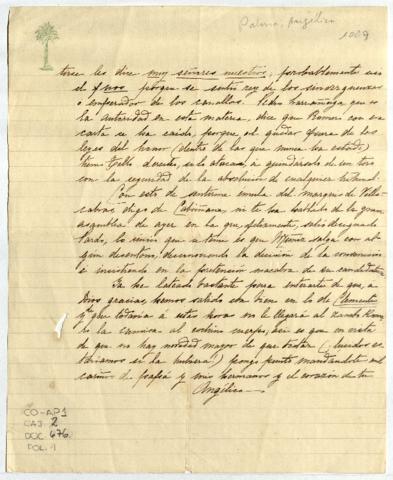 Palma, Angélica
1009
tarse les dice muy señores nuestros, probablemente usó
el furor porque se sintió rey de los sinvergüenzas
o emperador de los canallas. Pedro Larrañaga que es
la autoridad en esta materia, dice que Román con esa
carta se ha caído, porque al quedar fuera de las
leyes del honor (dentro de las que nunca ha estado)
decente, si lo atacan, a quedárselo de un tiro
con la seguridad de la absolución de cualquier tribunal.
Con esto de sentirme émula del marqués de Villa
cabras digo de Cabriñana, ni te he hablado de la gran
asamblea de ayer en la que, felizmente, salió designado
Pardo, lo único que se teme es que Muñiz salga con al
gún desentono, desconociendo la decisión de la convención
e insistiendo en la pretensión macabra de su candidatura
Ya he lateado bastante para enterarte de que, a
Dios gracias, hemos salido ya bien en lo de Clemente
y que todavía a estas horas no le llegará al
la camisa al cuerpo, así es que en vista
de que no hay novedad mayor de que tratar (buenos es
taríamos si la hubiera!) pongo punto mandándote mil
cariños de papá y mis hermanos y el corazón de tu
Angélica
CO-AP1
CAJ. 2
DOC. 676
FOL. 1